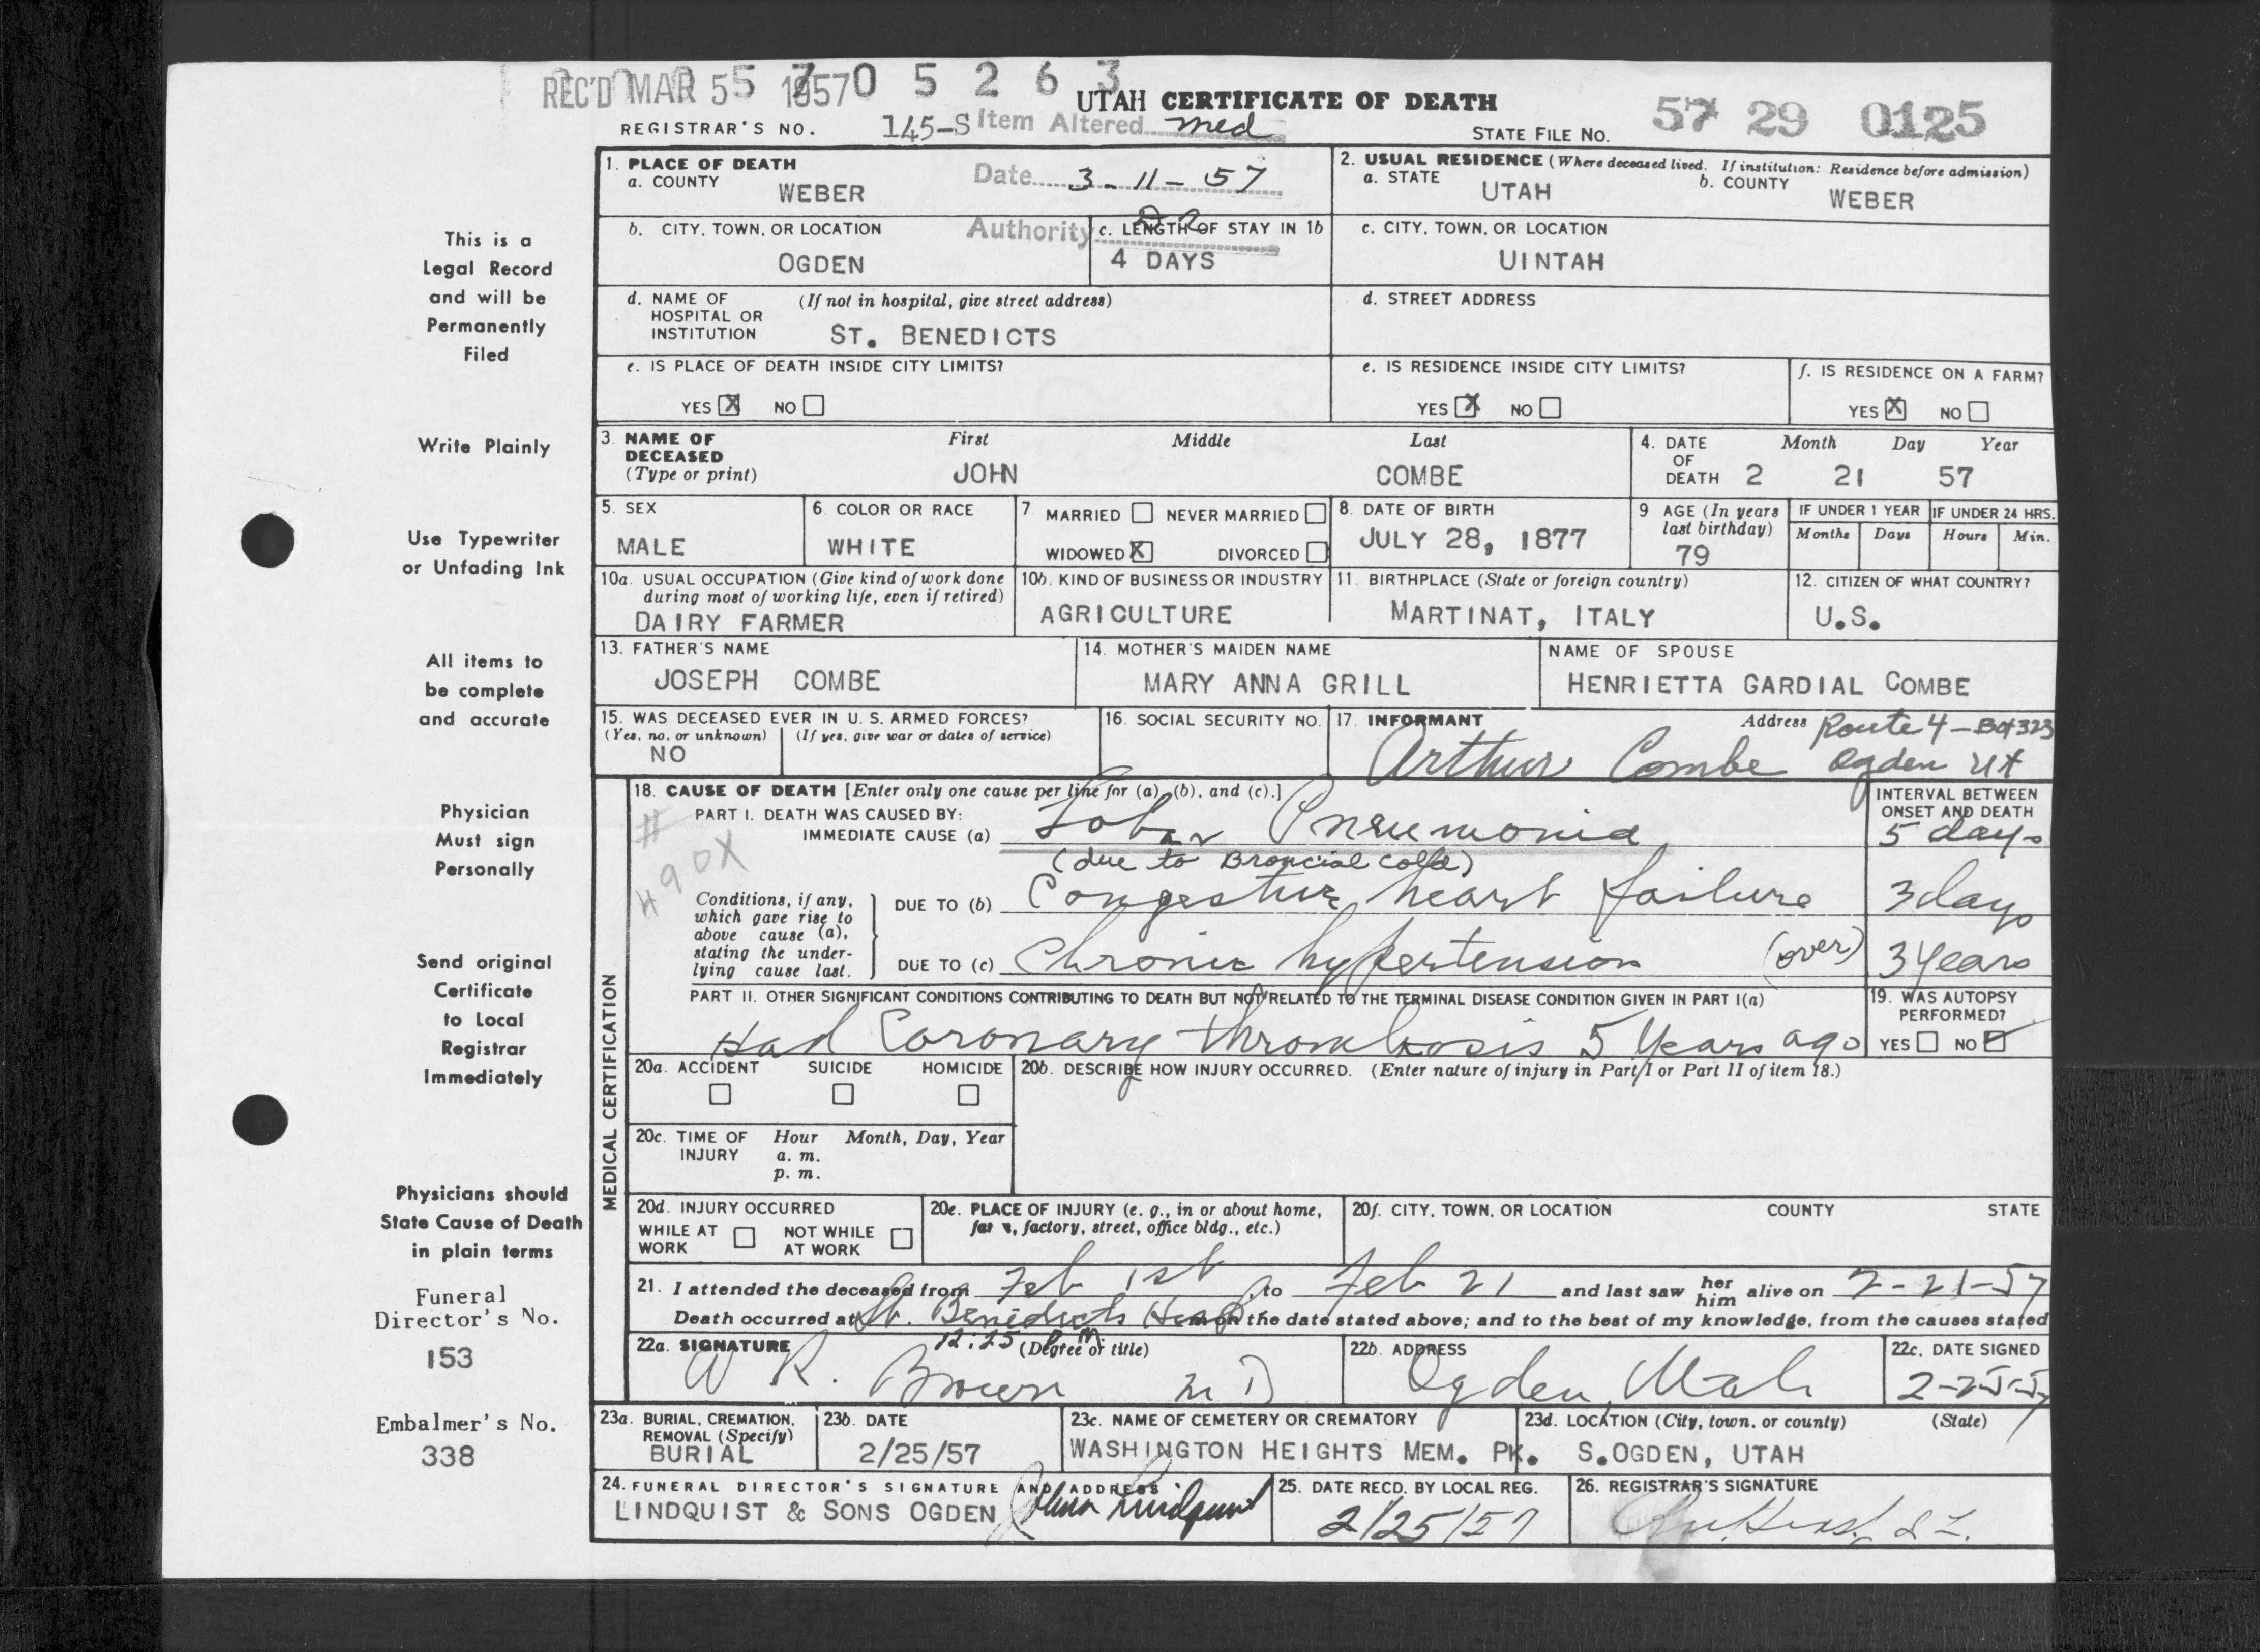 REC'D MAR 5 1957 0 5 2 6 3
UTAH CERTIFICATE OF DEATH
57 29 0125
REGISTRAR'S NO. 145-S Item Altered med STATE FILE NO.
1. PLACE OF DEATH
a. COUNTY WEBER
Date 3-11-57
2. USUAL RESIDENCE (Where deceased lived. If institution: Residence before admission)
a. STATE UTAH b. COUNTY WEBER
b. CITY, TOWN, OR LOCATION OGDEN
Authority
c. LENGTH OF STAY IN 1b 4 DAYS
c. CITY, TOWN, OR LOCATION UINTAH
d. NAME OF HOSPITAL OR INSTITUTION (If not in hospital, give street address) ST. BENEDICTS
d. STREET ADDRESS
e. IS PLACE OF DEATH INSIDE CITY LIMITS? YES X NO
e. IS RESIDENCE INSIDE CITY LIMITS? YES X NO
f. IS RESIDENCE ON A FARM? YES X NO
3. NAME OF DECEASED (Type or print) First Middle Last
JOHN COMBE
4. DATE OF DEATH Month Day Year
2 21 57
5. SEX MALE
6. COLOR OR RACE WHITE
7. MARRIED NEVER MARRIED
WIDOWED X DIVORCED
8. DATE OF BIRTH JULY 28, 1877
9 AGE (In years last birthday) 79
IF UNDER 1 YEAR Months Days
IF UNDER 24 HRS. Hours Min.
10a. USUAL OCCUPATION (Give kind of work done during most of working life, even if retired)
DAIRY FARMER
10b. KIND OF BUSINESS OR INDUSTRY
AGRICULTURE
11. BIRTHPLACE (State or foreign country)
MARTINAT, ITALY
12. CITIZEN OF WHAT COUNTRY?
U.S.
13. FATHER'S NAME
JOSEPH COMBE
14. MOTHER'S MAIDEN NAME
MARY ANNA GRILL
NAME OF SPOUSE
HENRIETTA GARDIAL COMBE
15. WAS DECEASED EVER IN U. S. ARMED FORCES?
(Yes, no, or unknown) (If yes, give war or dates of service)
NO
16. SOCIAL SECURITY NO.
17. INFORMANT Arthur Combe
Address Route 4 - Box 323
Ogden Ut
MEDICAL CERTIFICATION
18. CAUSE OF DEATH [Enter only one cause per line for (a), (b), and (c).]
INTERVAL BETWEEN ONSET AND DEATH
PART I. DEATH WAS CAUSED BY:
IMMEDIATE CAUSE (a) Lobar Pneumonia 5 days
(due to Broncial cold)
# 490X
Conditions, if any, which gave rise to above cause (a), stating the underlying cause last.
DUE TO (b) Congestive heart failure 3 days
DUE TO (c) Chronic hypertension (over) 3 years
PART II. OTHER SIGNIFICANT CONDITIONS CONTRIBUTING TO DEATH BUT NOT RELATED TO THE TERMINAL DISEASE CONDITION GIVEN IN PART I(a)
Had Coronary thrombosis 5 years ago
19. WAS AUTOPSY PERFORMED?
YES NO
20a. ACCIDENT SUICIDE HOMICIDE
20b. DESCRIBE HOW INJURY OCCURRED. (Enter nature of injury in Part I or Part II of item 18.)
20c. TIME OF INJURY Hour Month, Day, Year
a. m.
p. m.
20d. INJURY OCCURRED
WHILE AT WORK NOT WHILE AT WORK
20e. PLACE OF INJURY (e. g., in or about home, farm, factory, street, office bldg., etc.)
20f. CITY, TOWN, OR LOCATION COUNTY STATE
21. I attended the deceased from Feb 1st to Feb 21 and last saw her him alive on 2-21-57
Death occurred at St. Benedicts Hosp on the date stated above; and to the best of my knowledge, from the causes stated
12:25 P.M.
22a. SIGNATURE (Degree or title)
W R. Brown M D
22b. ADDRESS
Ogden, Utah
22c. DATE SIGNED
2-25-57
23a. BURIAL, CREMATION, REMOVAL (Specify)
BURIAL
23b. DATE
2/25/57
23c. NAME OF CEMETERY OR CREMATORY
WASHINGTON HEIGHTS MEM. PK.
23d. LOCATION (City, town, or county) (State)
S.OGDEN, UTAH
24. FUNERAL DIRECTOR'S SIGNATURE AND ADDRESS
LINDQUIST & SONS OGDEN John Lindquist
25. DATE RECD. BY LOCAL REG.
2/25/57
26. REGISTRAR'S SIGNATURE
This is a
Legal Record
and will be
Permanently
Filed
Write Plainly
Use Typewriter
or Unfading Ink
All items to
be complete
and accurate
Physician
Must sign
Personally
Send original
Certificate
to Local
Registrar
Immediately
Physicians should
State Cause of Death
in plain terms
Funeral
Director's No.
153
Embalmer's No.
338